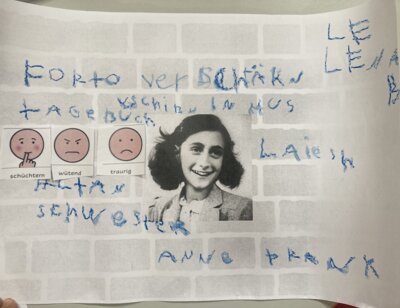 LE
LENA
B
FORTO verSCHÄKN
TAGEBUCH IN HUS
Laiesh
schüchtern wütend traurig
ALTAN
SCHWESTER
ANNE FRANK